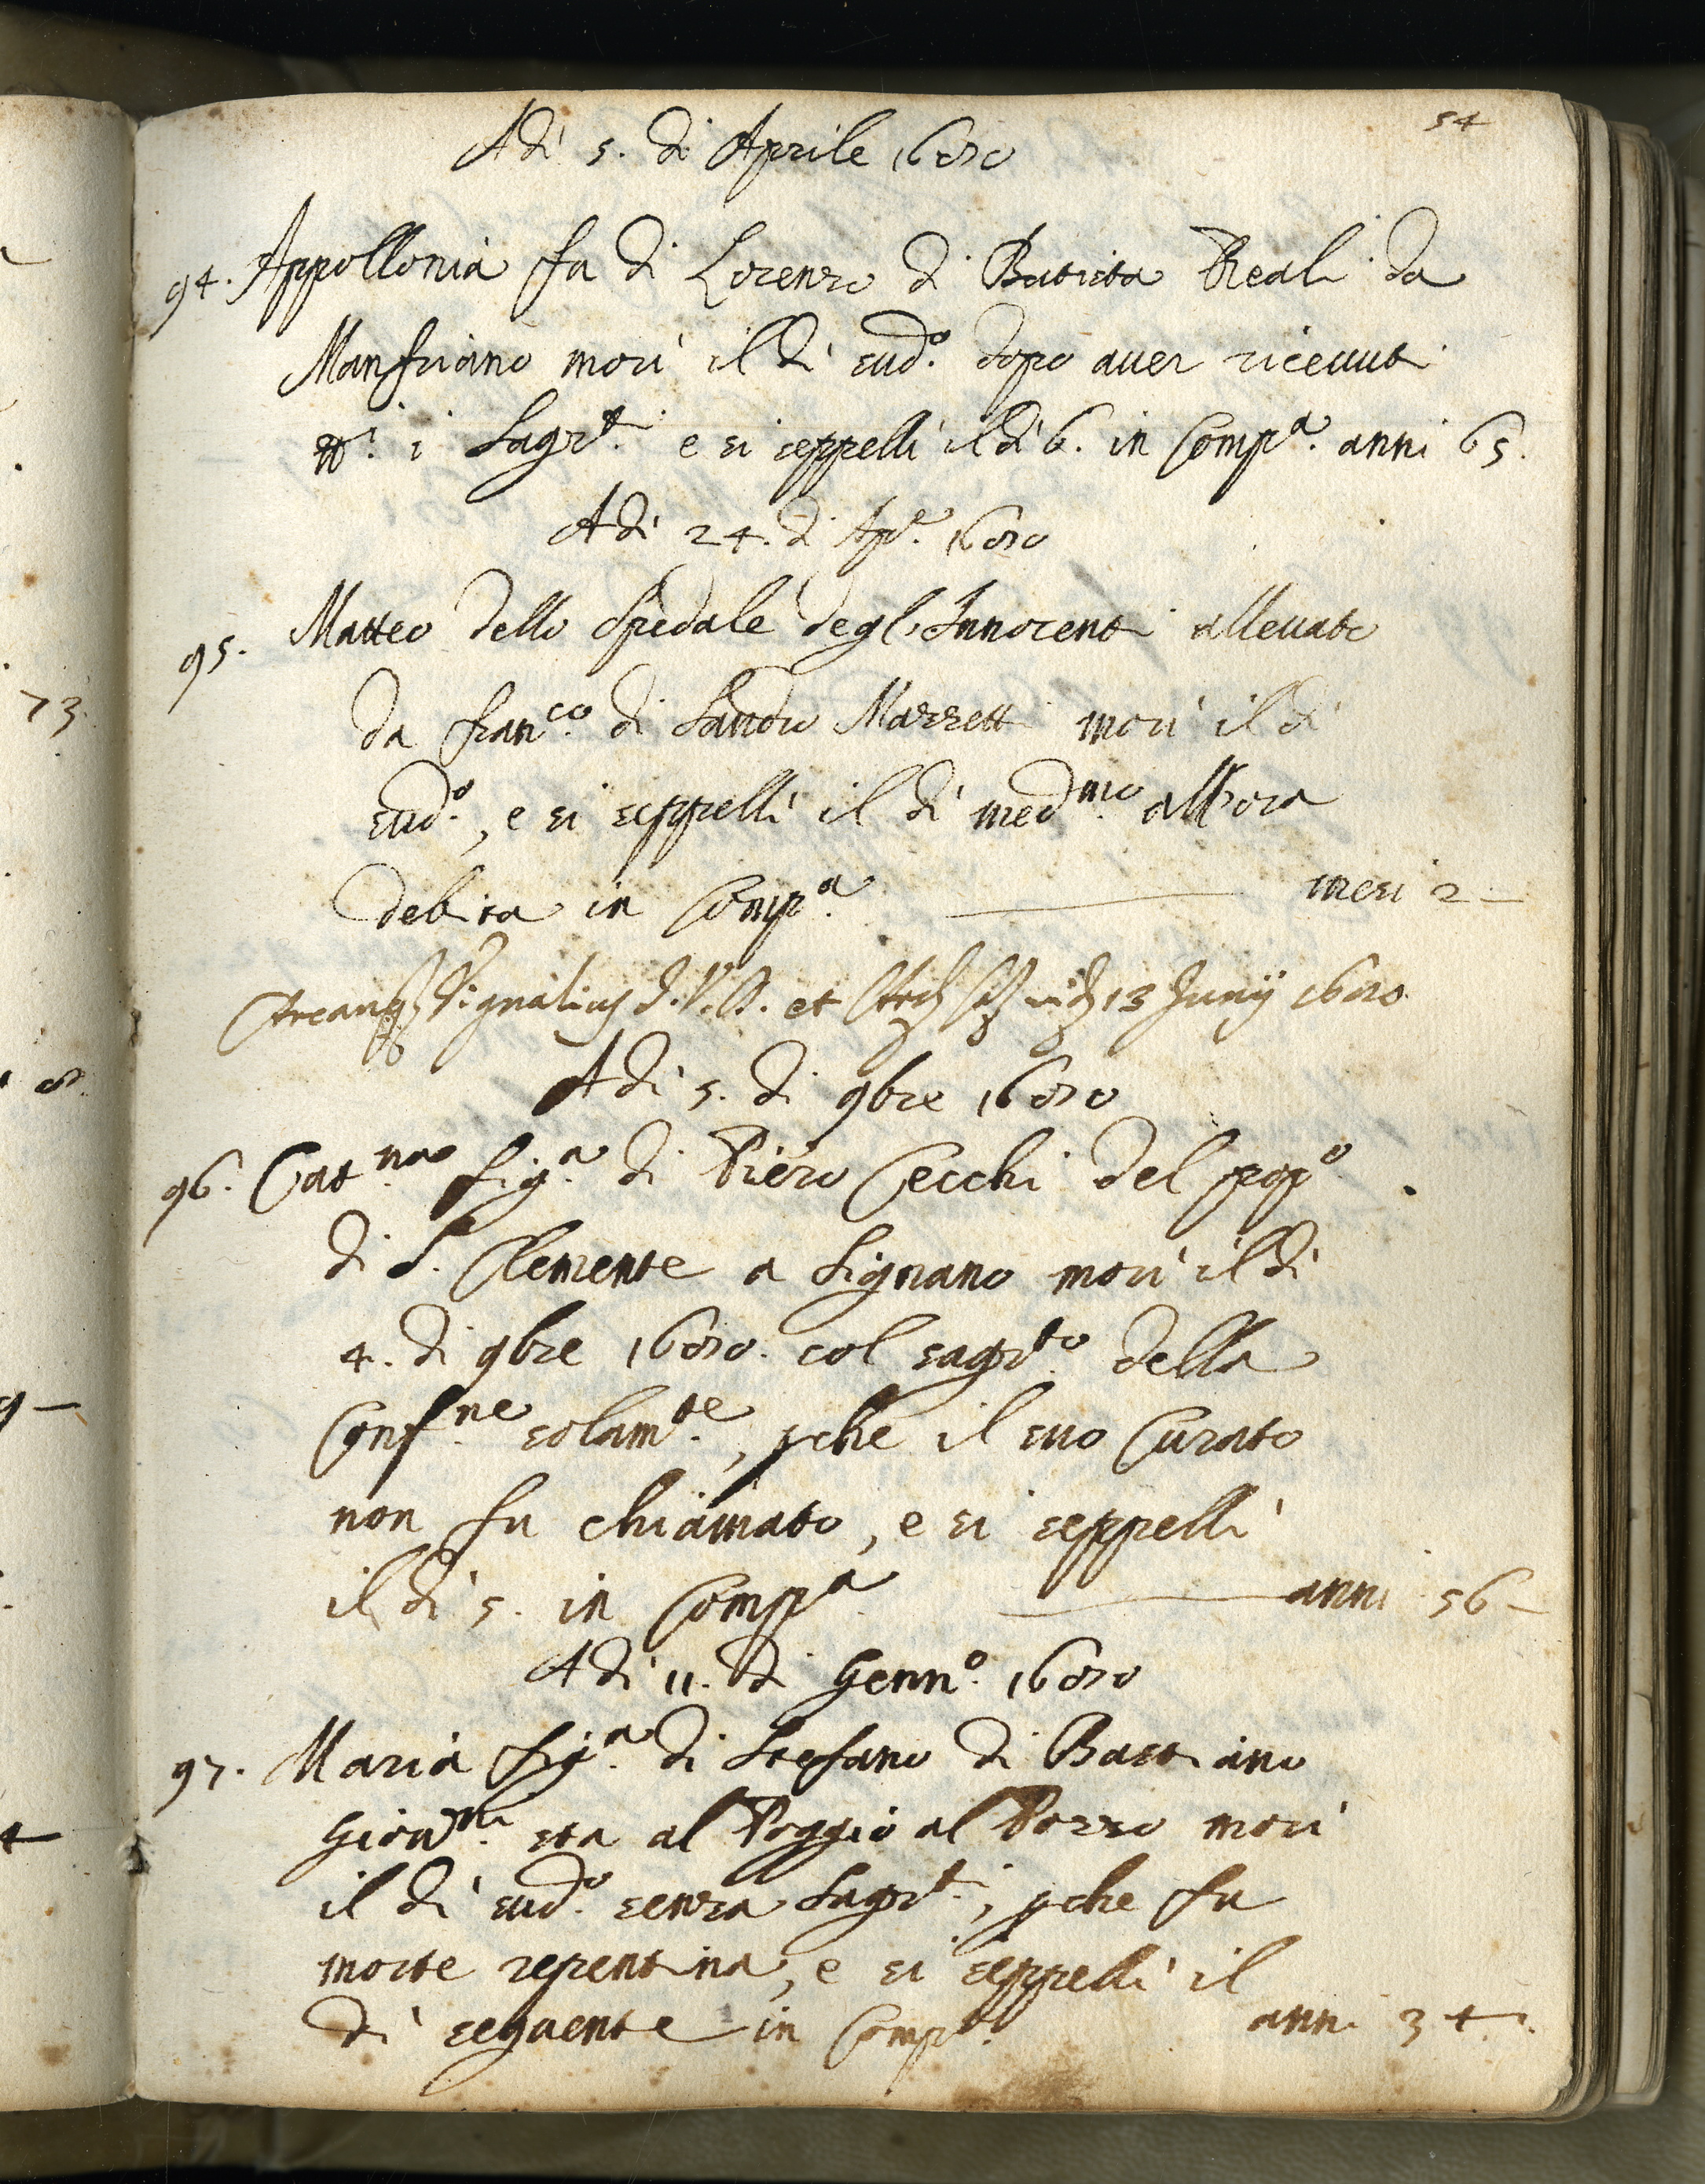 54
Adì 5. di Aprile 1680
94. Appollonia fu di Lorenzo di Batista Reali da
Manfriano morì il dì sud.o dopo aver ricevuti
tt.i i Sagr.ti e si seppellì il dì 6. in Comp.a anni 65.
Adì 24. di Ap.e 1680
95. Matteo dello Spedale degl'Innocenti allevato
da Fran.co di Sandro Mazzetti morì il dì
sud.o, e si seppellì il dì med.mo all'ora
debita in Comp.a mesi 2
13 Junij 1680
Adì 5. di 9bre 1680
96. Cat.na fig.a di Piero Cecchi del pop.o
di S. Clemente a Signano morì il dì
4. di 9bre 1680. col sagr.to della
Conf.ne solam.te, pche il suo Curato
non fu chiamato, e si seppellì
il dì 5. in Comp.a anni 56
Adì 11. di Genn.o 1680
97. Maria fig.a di Stefano di Bastiano
sta al Poggio al Pozzo morì
il dì sud.o senza Sagr.ti, pche fu
morte repentina, e si seppellì il
dì seguente in Comp.a anni 34.
73.